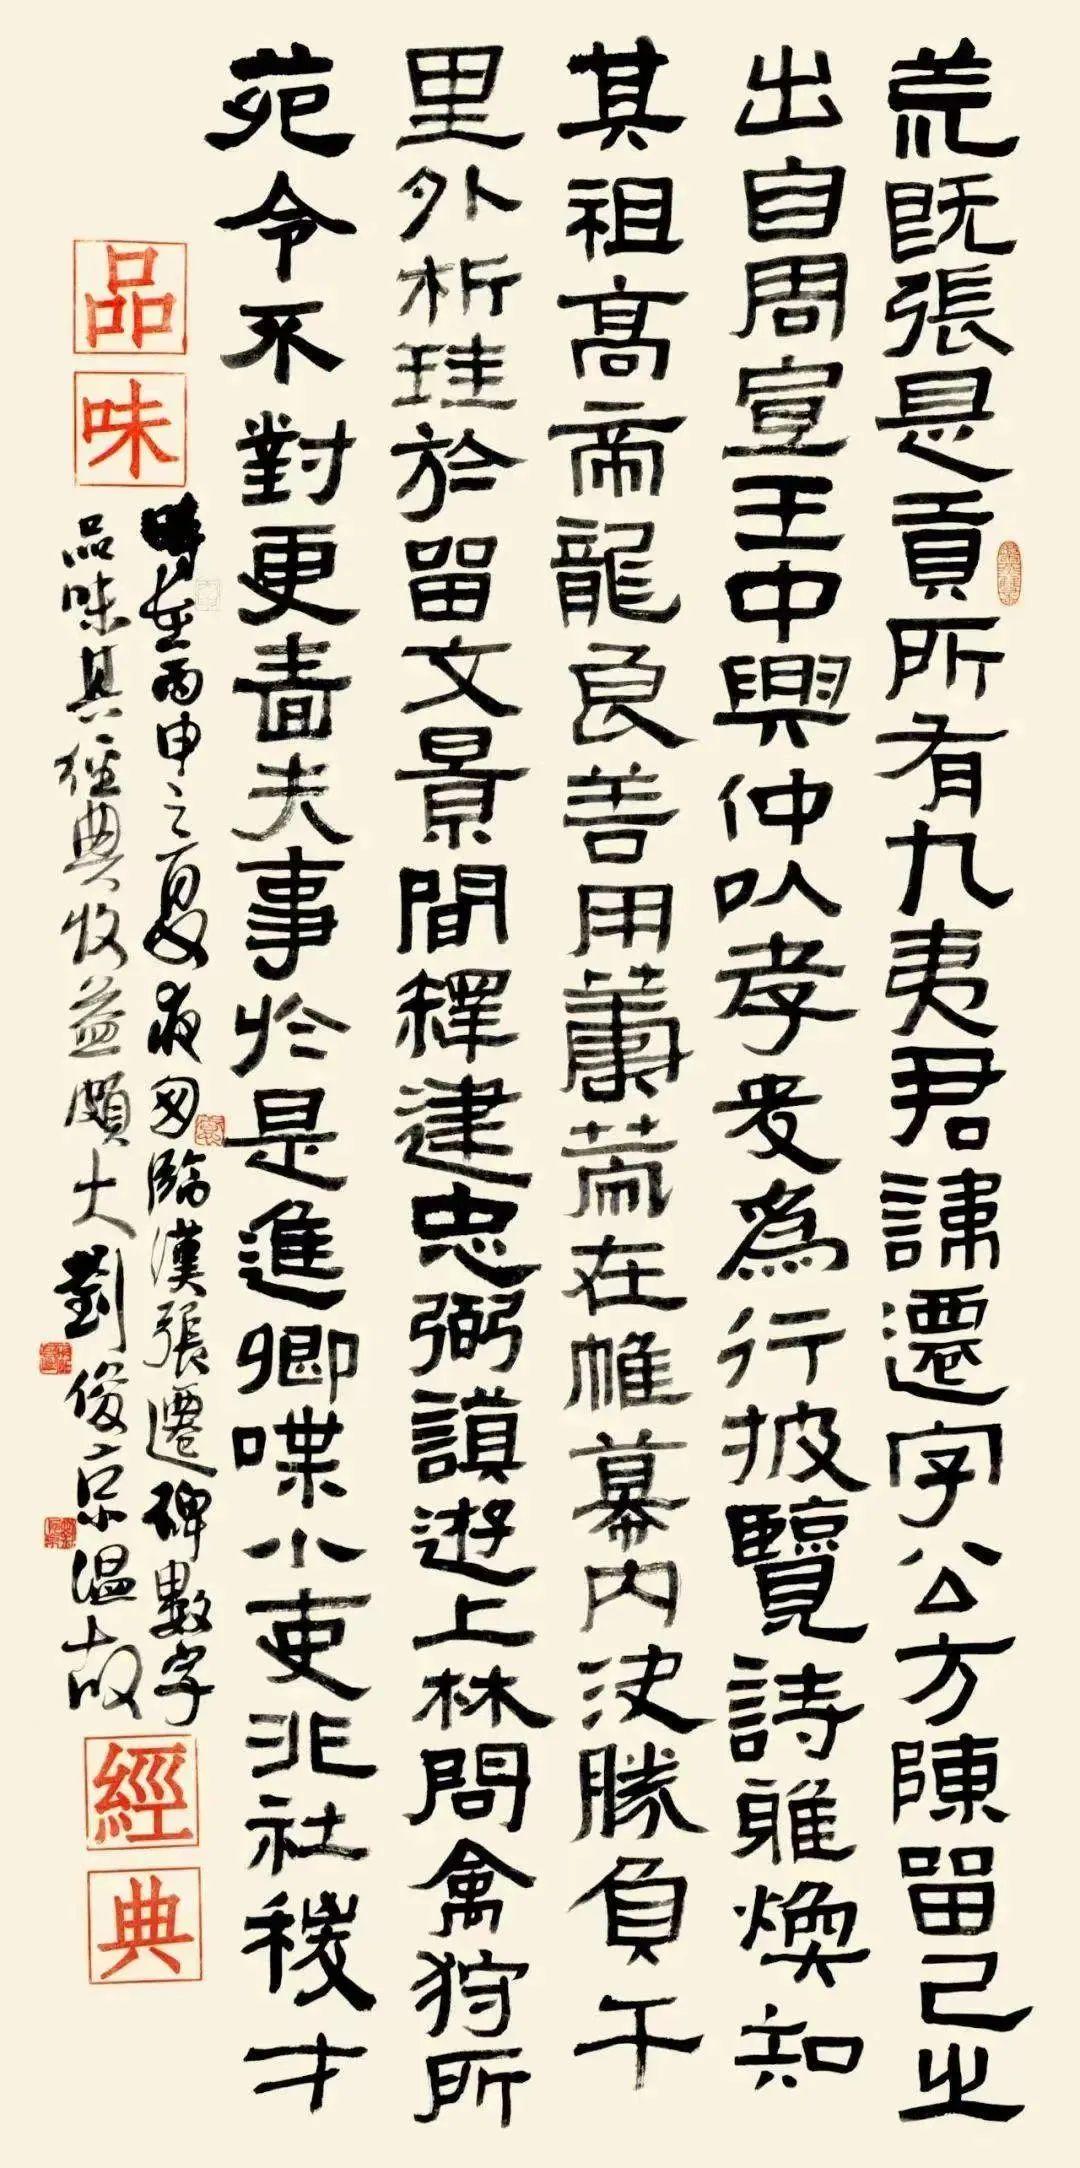 荒既張是貢所有九夷君諱遷字公方陳留己之
出自周宣王中興仲以孝友為行披覽詩雅煥知
其祖高帝龍良善用籌策在帷幕內決勝負千
里外析珪於留文景間釋建忠弼謨遊上林問禽狩所
苑令不對更嗇夫事於是進啣喋小吏非社稷才
時在丙申之夏夜匆臨漢張遷碑數字
品味其經典收益頗大劉俊京溫故
品味
經典